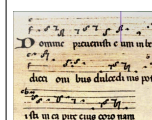 Domine prevenisti e um in be
dieci om bus dulcedi nis po
isti in ca pite eius coro nam